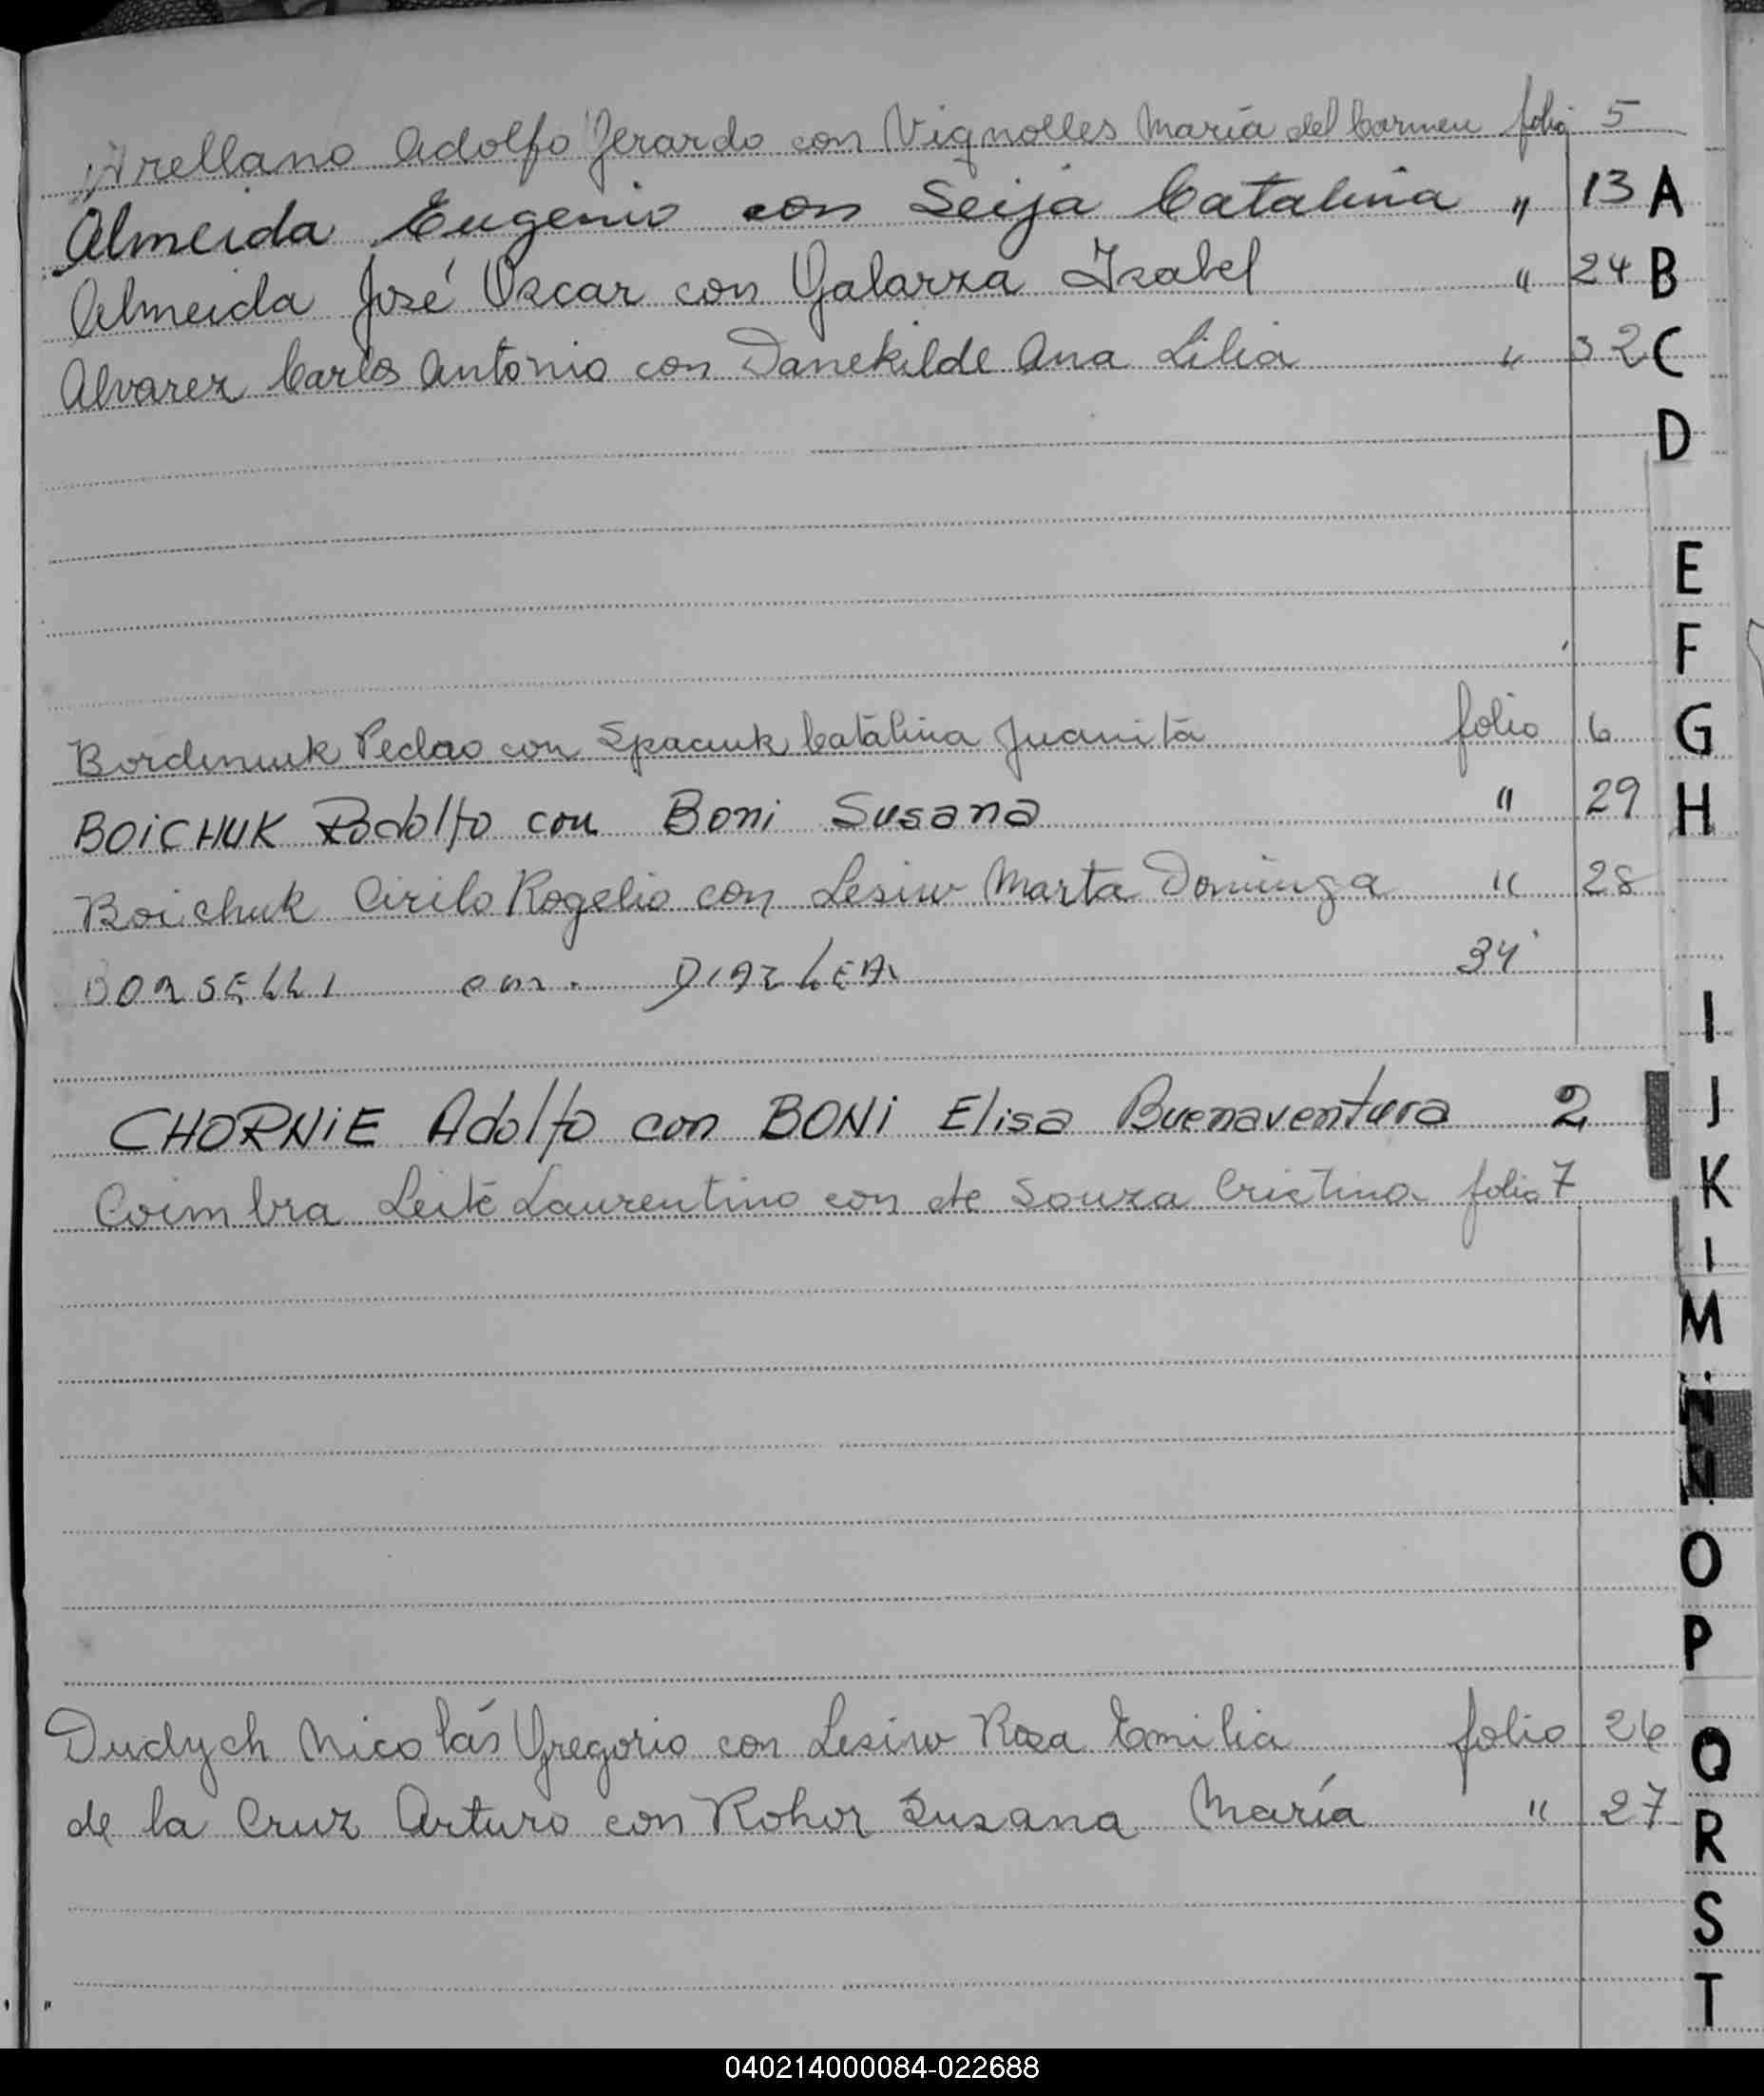 Arellano Adolfo Gerardo con Vignolles María del Carmen folio 5
Almeida Eugenio con Seija Catalina " 13 A
Almeida José Oscar con Galarza Isabel " 24 B
Alvarez Carlos Antonio con Danekilde Ana Lilia " 32 C
D
E
F
Bordenuk Pedro con Spaciuk Catalina Juanita folio 6 G
BOiCHUK Rodolfo con Boni Susana " 29 H
Boichuk Cirilo Rogelio con Lesiw Marta Dominga " 28
BORSELLI con. DIAZ LEA 34
I
CHORNiE Adolfo con BONi Elisa Buenaventura 2 J
Coimbra Leite Laurentino con de Souza Cristina folio 7 K
M
N
N
O
P
Dudych Nicolás Gregorio con Lesiw Rosa Emilia folio 26 Q
de la Cruz Arturo con Rohor Susana María " 27 R
S
T
040214000084-022688